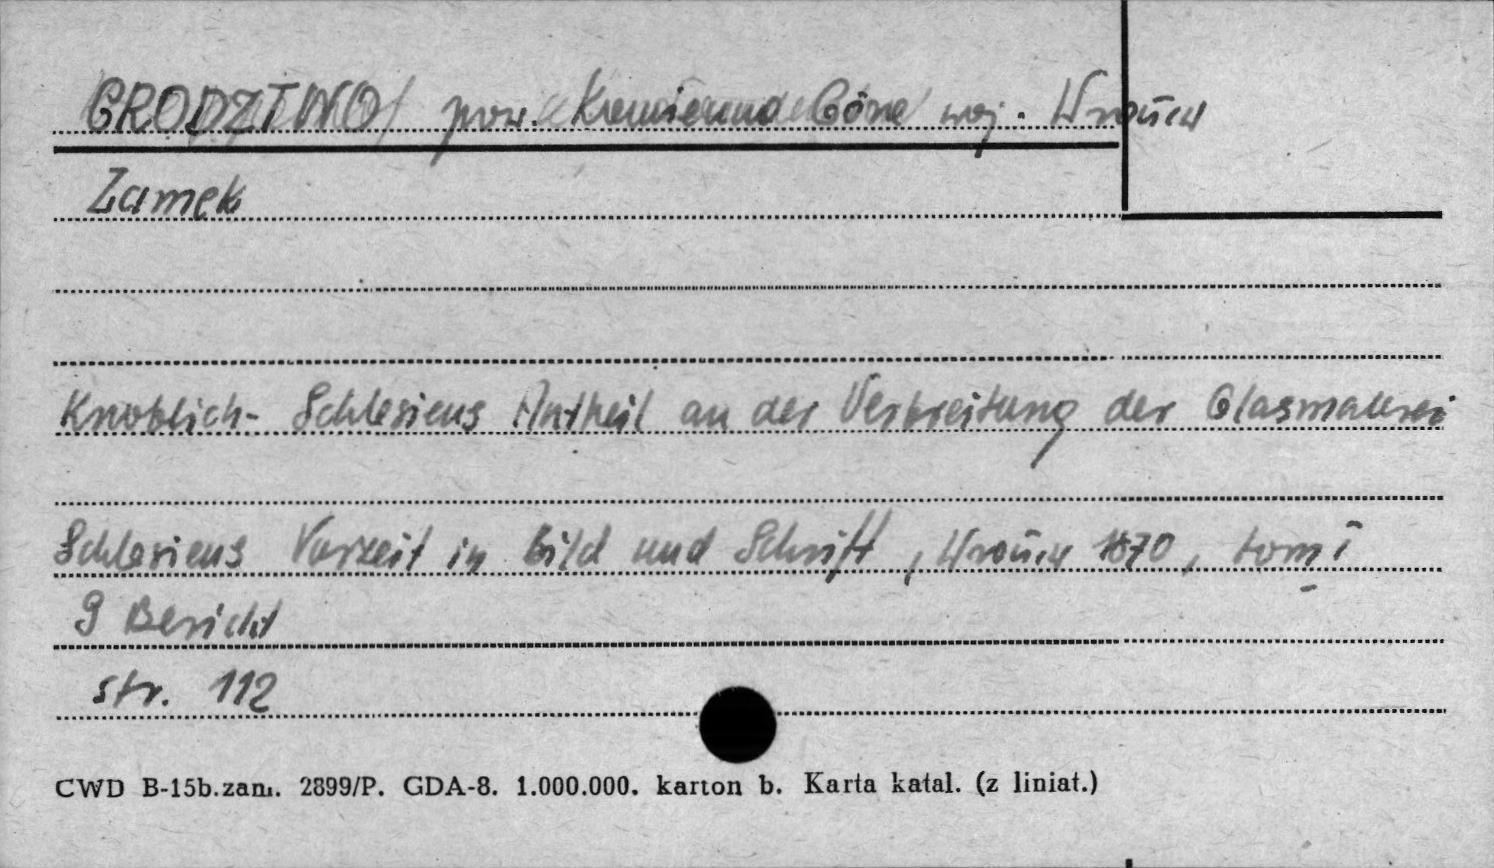 GRODZTWO pow. Kamienna Góra woj. Wrocław
Zamek
Knoblich- Schlesiens Antheil an der Verbreitung der Glasmalerei
Schlesiens Vorzeit in Bild und Schrift, Wrocław 1870, tom I
9 Bericht
str. 112
CWD B-15b.zam. 2899/P. GDA-8. 1.000.000. karton b. Karta katal. (z liniat.)